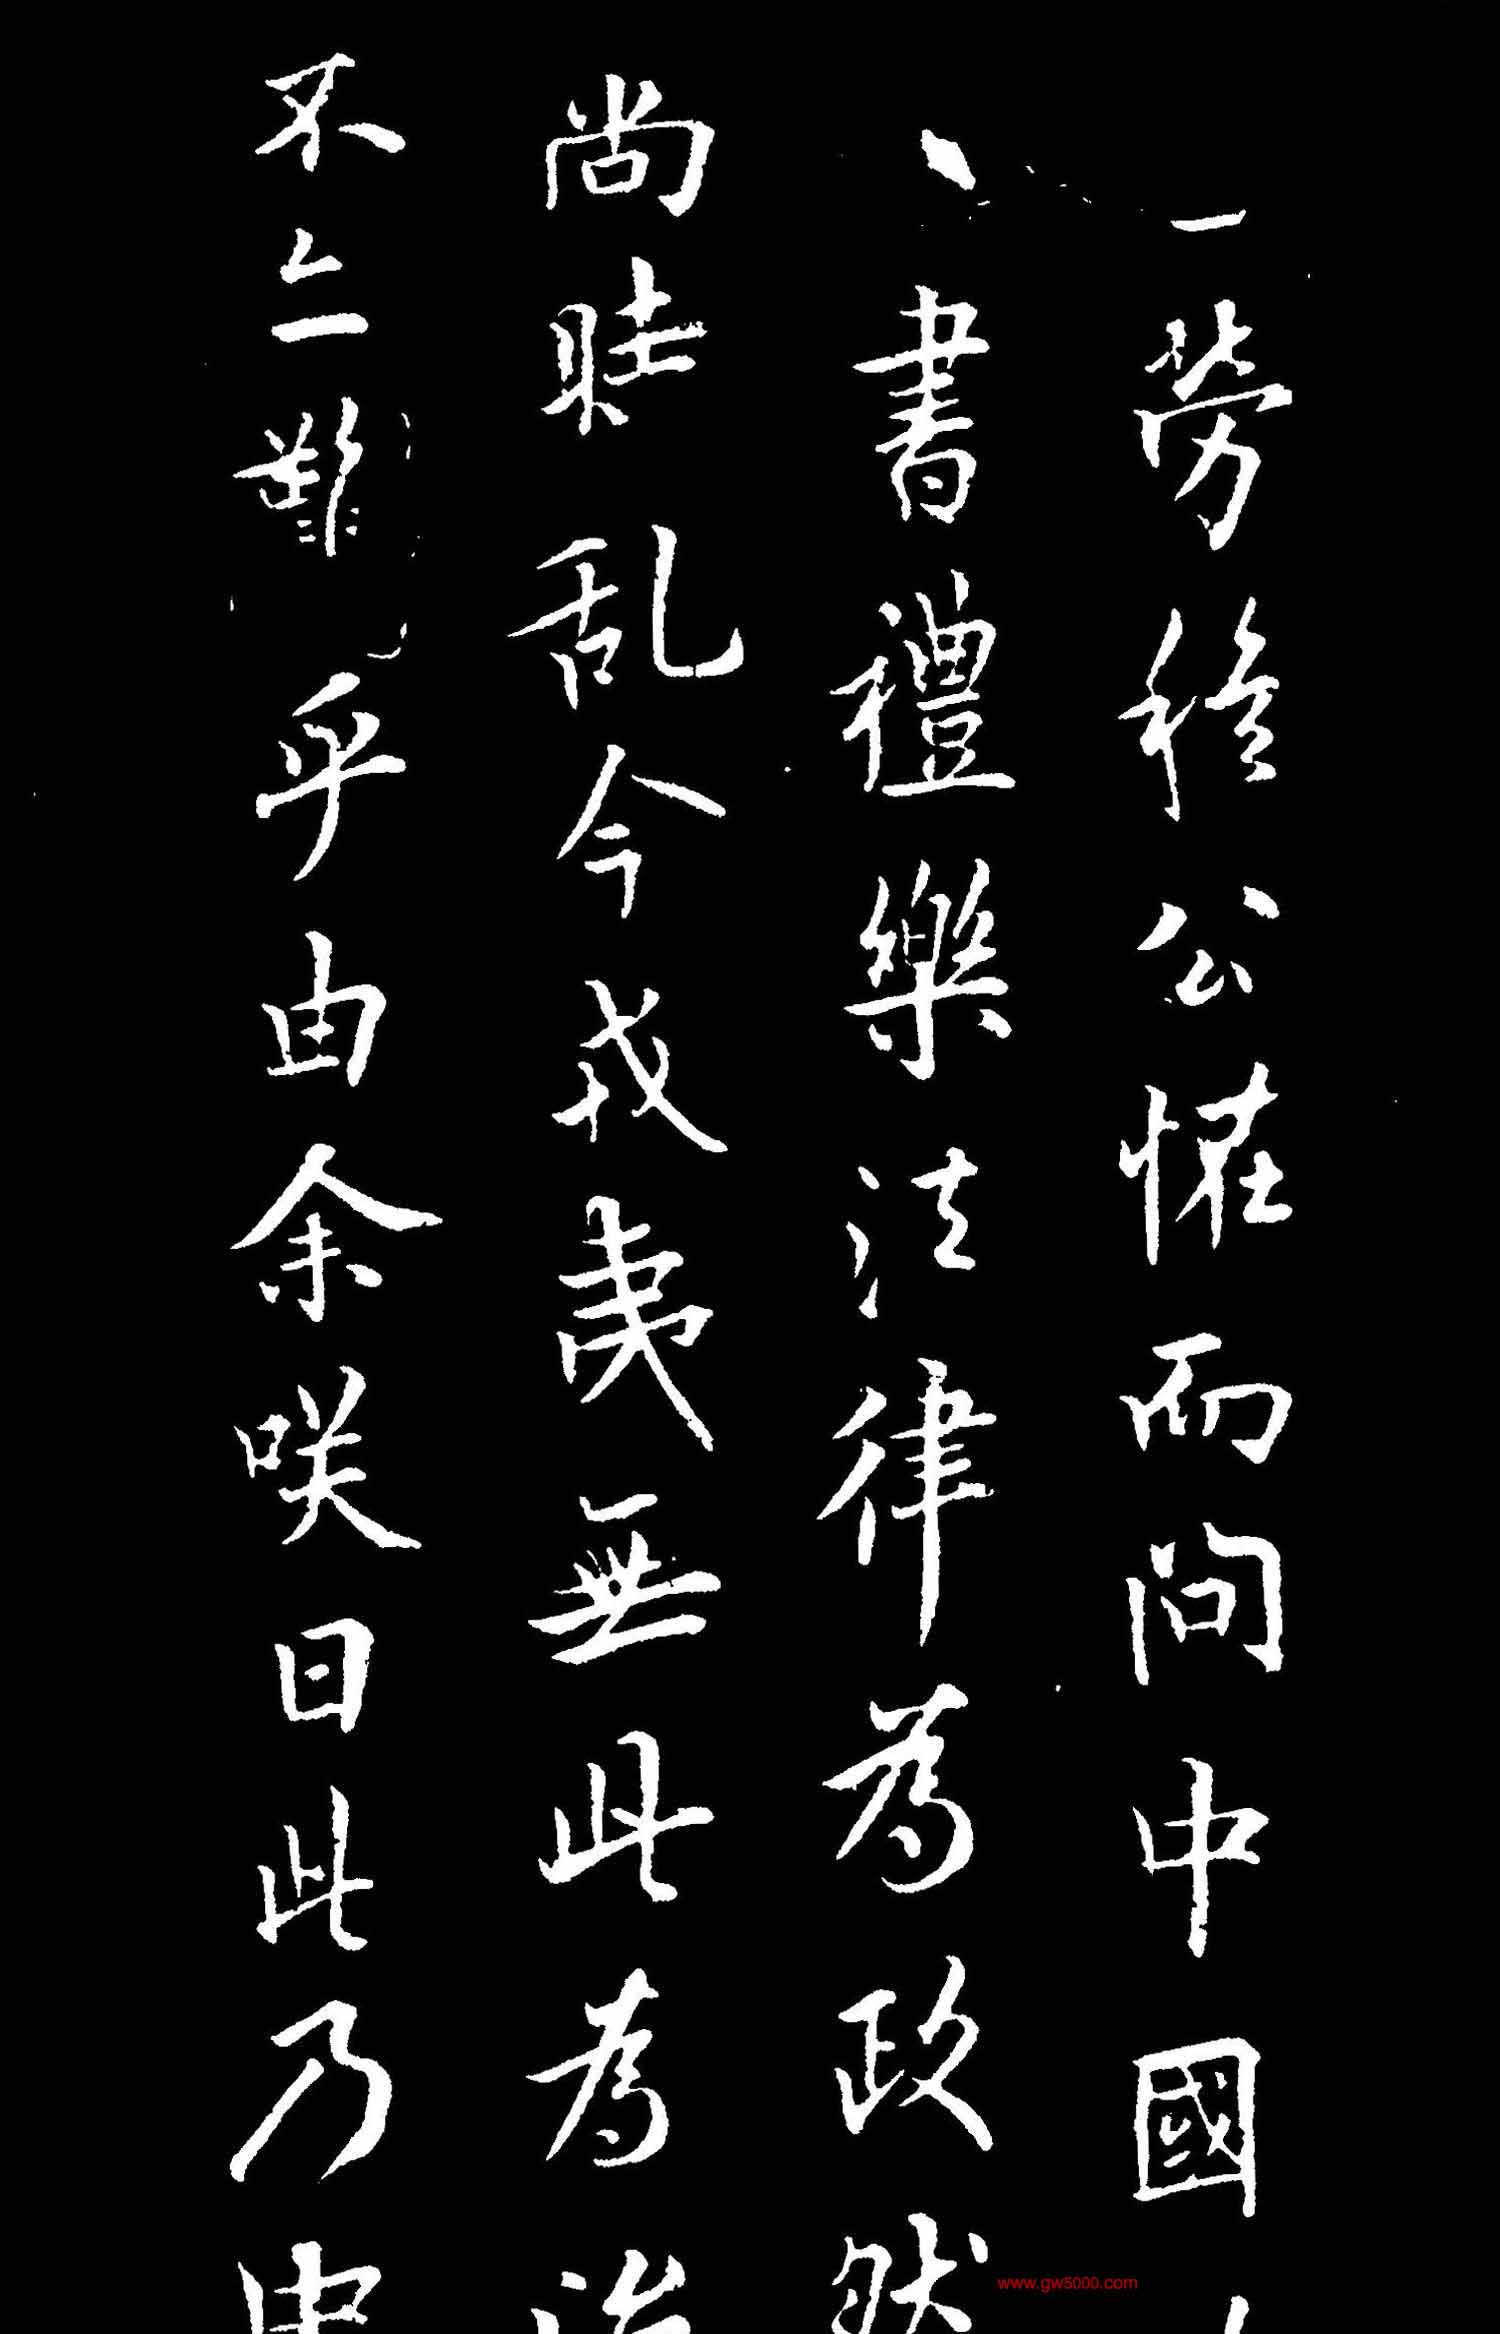 勞穆公恠而問中國
書禮樂法律為政然
尚時乱今戎夷無此為治
不難乎由余咲曰此乃中
www.gw5000.com